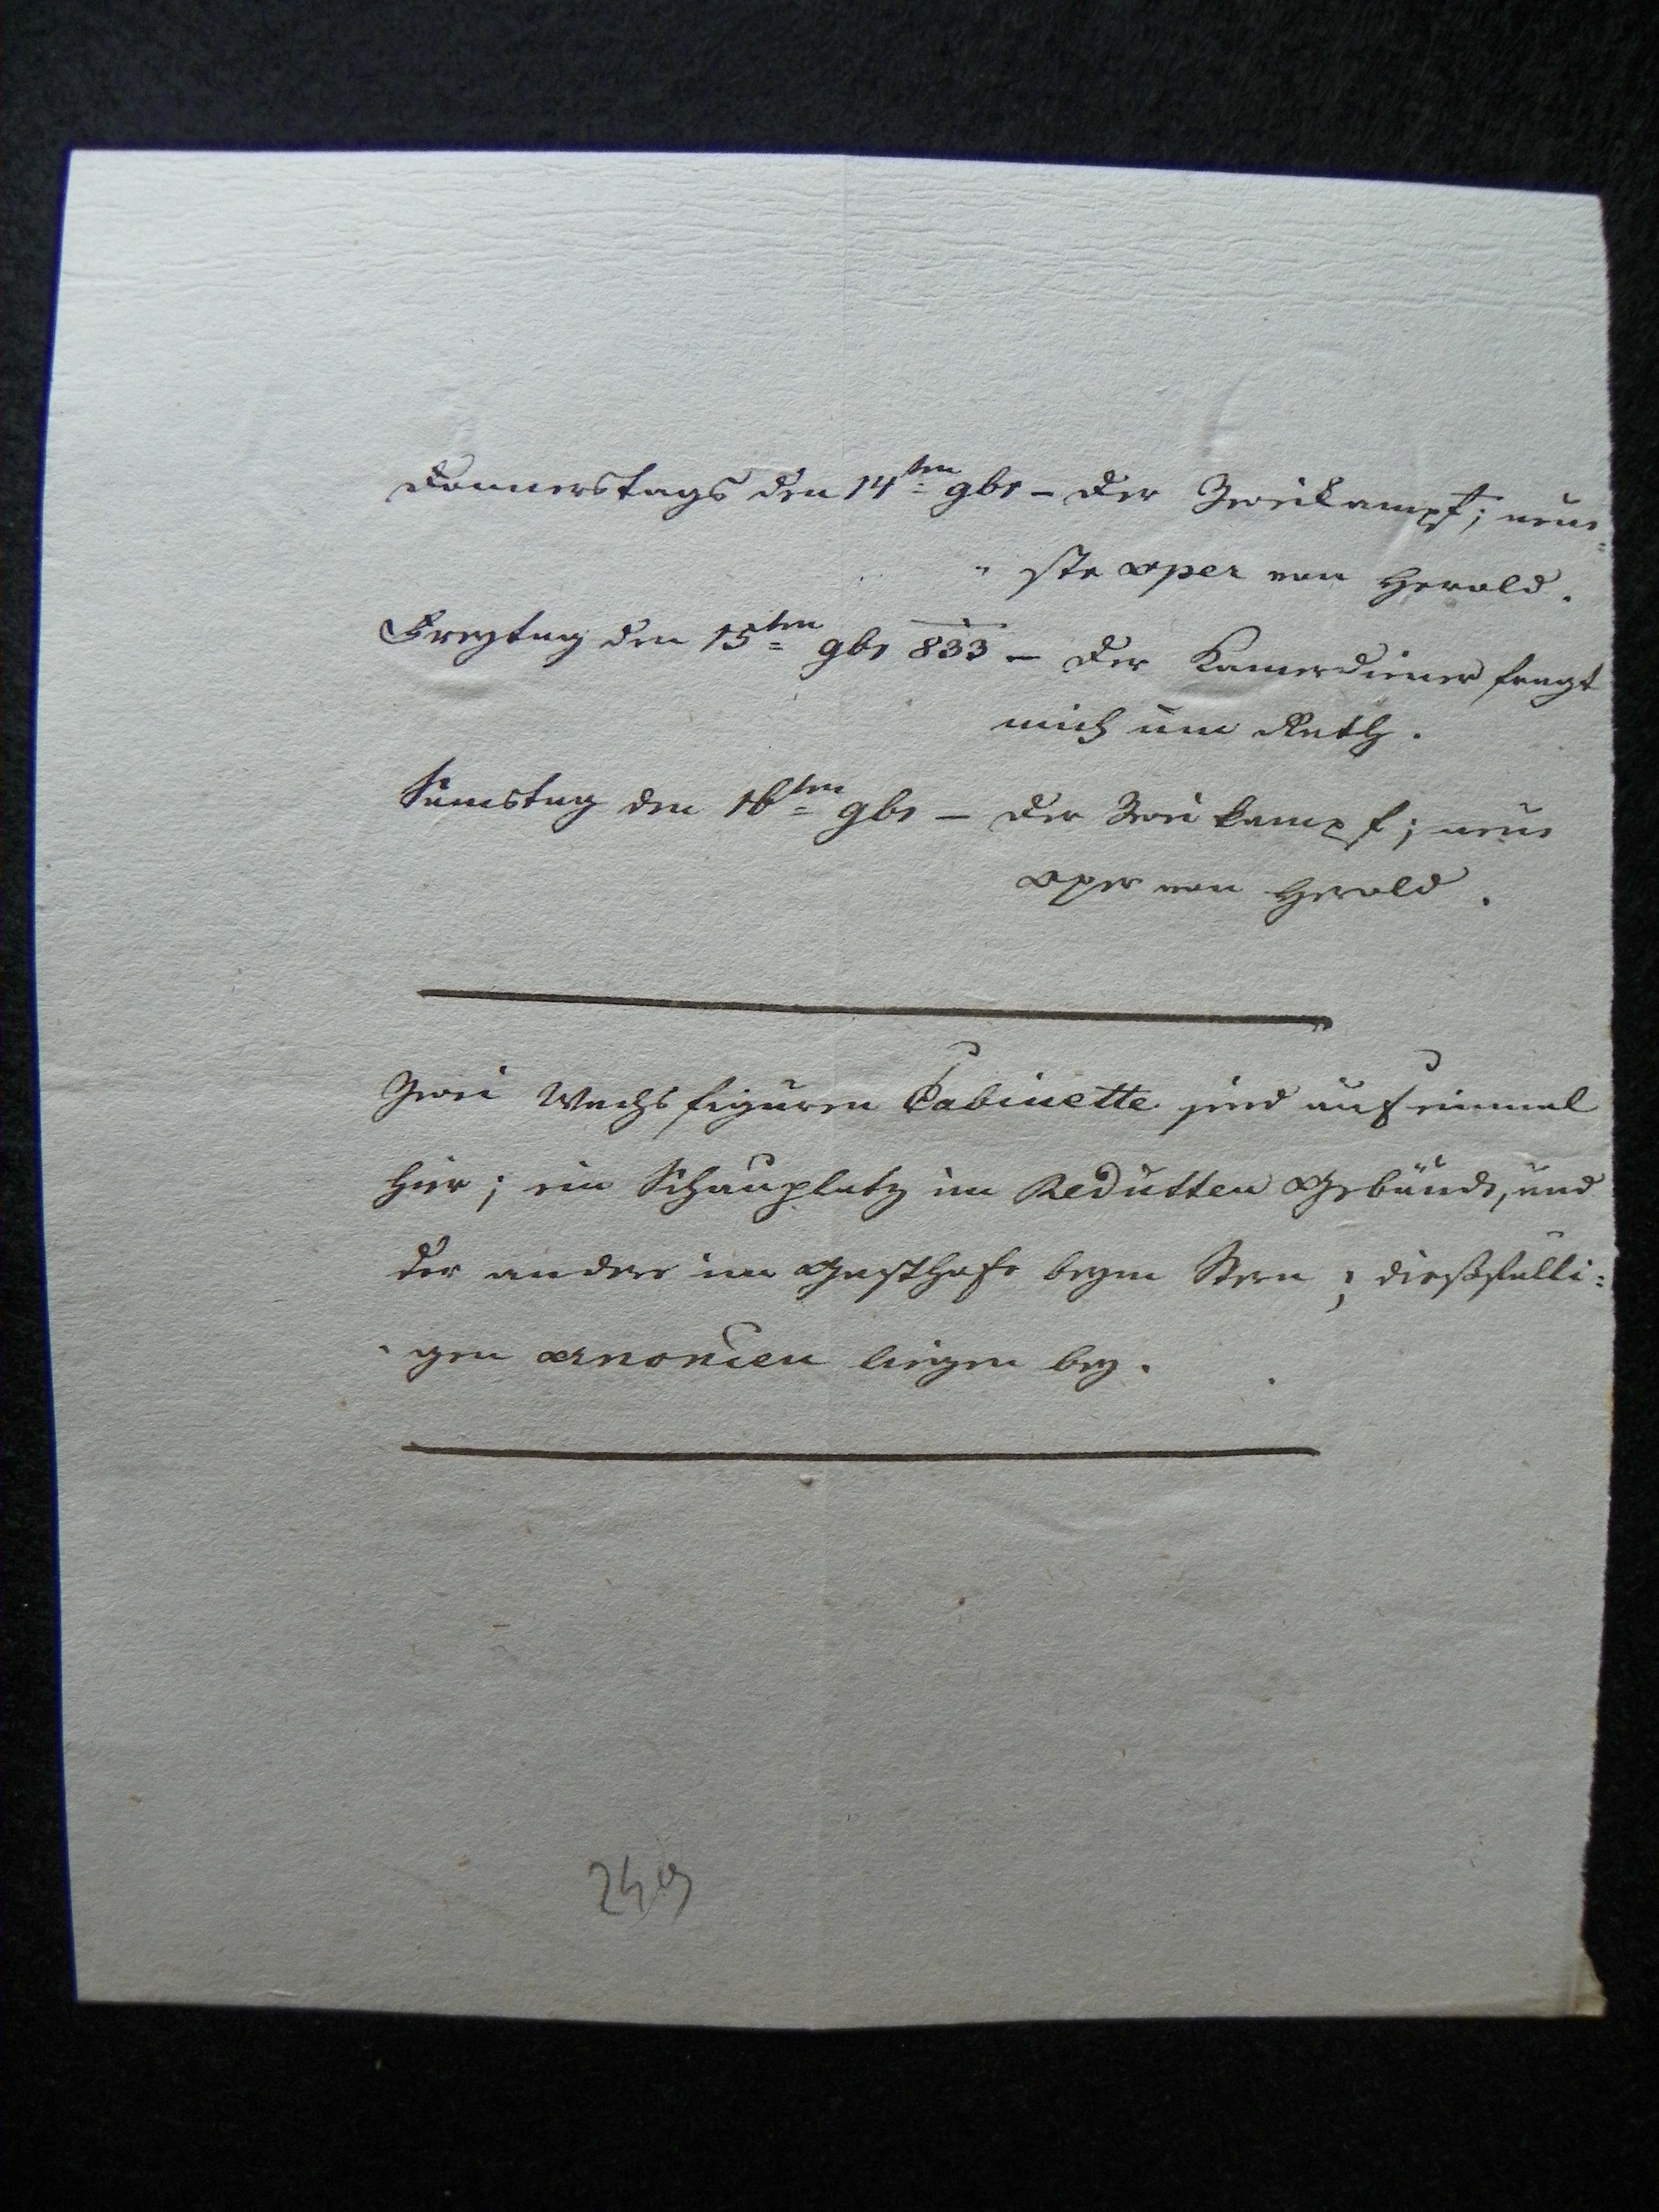 Donnerstags den 14ten 9br – Der Zweikampf; neue=
ste Oper von Herold.
Freytag den 15ten 9br 833 – Der Kamerdiener fragt
mich um Rath.
Samstag den 16ten 9br – Der Zweikampf; neue
Oper von Herold.
Zwei Wachsfiguren Cabinette sind auf einmal
hier; ein Schauplatz im Redutten Gebäude, und
der andere im Gasthofe beym Stern; dießfälli=
gen liegen bey.
249